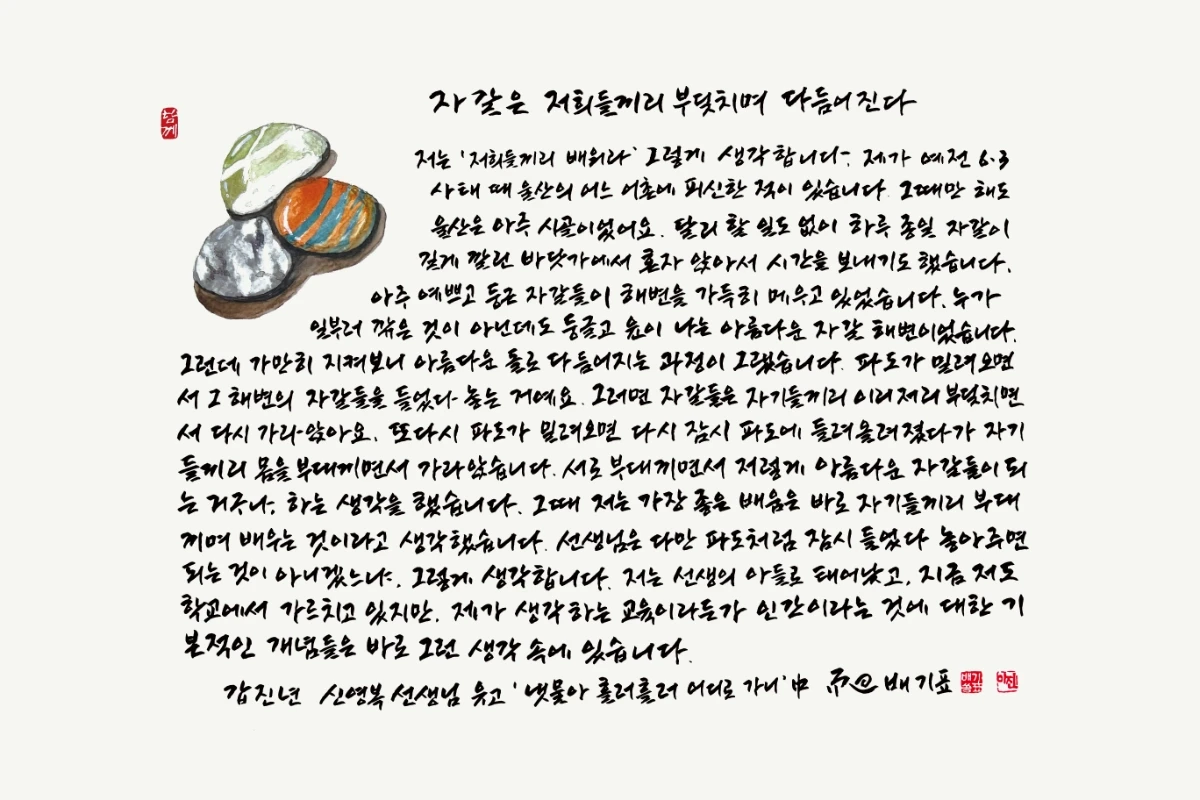 함께
자갈은 저희들끼리 부딪치며 다듬어진다
저는 '저희들끼리 배워라' 그렇게 생각합니다. 제가 예전 6·3
사태 때 울산의 어느 어촌에 피신한 적이 있습니다. 그때만 해도
울산은 아주 시골이었어요. 달리 할 일도 없이 하루 종일 자갈이
길게 깔린 바닷가에서 혼자 앉아서 시간을 보내기도 했습니다.
아주 예쁘고 둥근 자갈들이 해변을 가득히 메우고 있었습니다. 누가
일부러 깎은 것이 아닌데도 둥글고 윤이 나는 아름다운 자갈 해변이었습니다.
그런데 가만히 지켜보니 아름다운 돌로 다듬어지는 과정이 그랬습니다. 파도가 밀려오면
서 그 해변의 자갈들을 들었다 놓는 거예요. 그러면 자갈들은 자기들끼리 이리저리 부딪치면
서 다시 가라앉아요. 또다시 파도가 밀려오면 다시 잠시 파도에 들려올려졌다가 자기
들끼리 몸을 부대끼면서 가라앉습니다. 서로 부대끼면서 저렇게 아름다운 자갈들이 되
는 거구나, 하는 생각을 했습니다. 그때 저는 가장 좋은 배움은 바로 자기들끼리 부대
끼며 배우는 것이라고 생각했습니다. 선생님은 다만 파도처럼 잠시 들었다 놓아주면
되는 것이 아니겠느냐, 그렇게 생각합니다. 저는 선생의 아들로 태어났고, 지금 저도
학교에서 가르치고 있지만, 제가 생각하는 교육이라든가 인간이라는 것에 대한 기
본적인 개념들은 바로 그런 생각 속에 있습니다.
갑진년 신영복 선생님 유고 '냇물아 흘러흘러 어디로 가니' 中 배기표